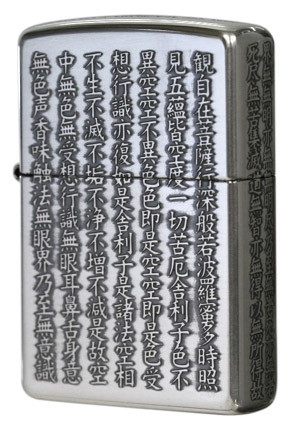 観自在菩薩行深般若波羅蜜多時照
見五蘊皆空度一切苦厄舎利子色不
異空空不異色色即是空空即是色受
想行識亦復如是舎利子是諸法空相
不生不滅不垢不浄不増不減是故空
中無色無受想行識無眼耳鼻舌身意
無色声香味触法無眼界乃至無意識
死尽無苦集滅道無智亦無得以無所得故